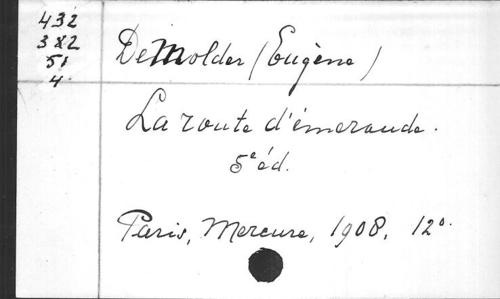 432
382
51
4
DeMolder (Eugène)
La route d'émeraude.
5e éd.
Paris, Mercure, 1908, 12o.